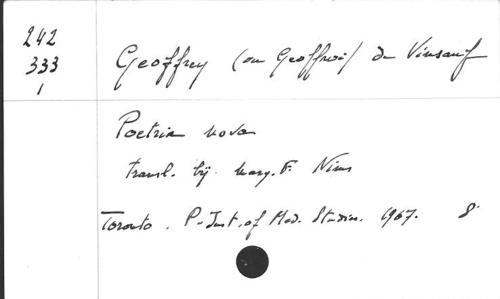 242
333
1
Geoffrey (ou Geoffroi) de Vinsauf
Poetria nova
transl. bij Marg. F. Nims
Toronto. P. Inst. of Med. Studies. 1967. 8°